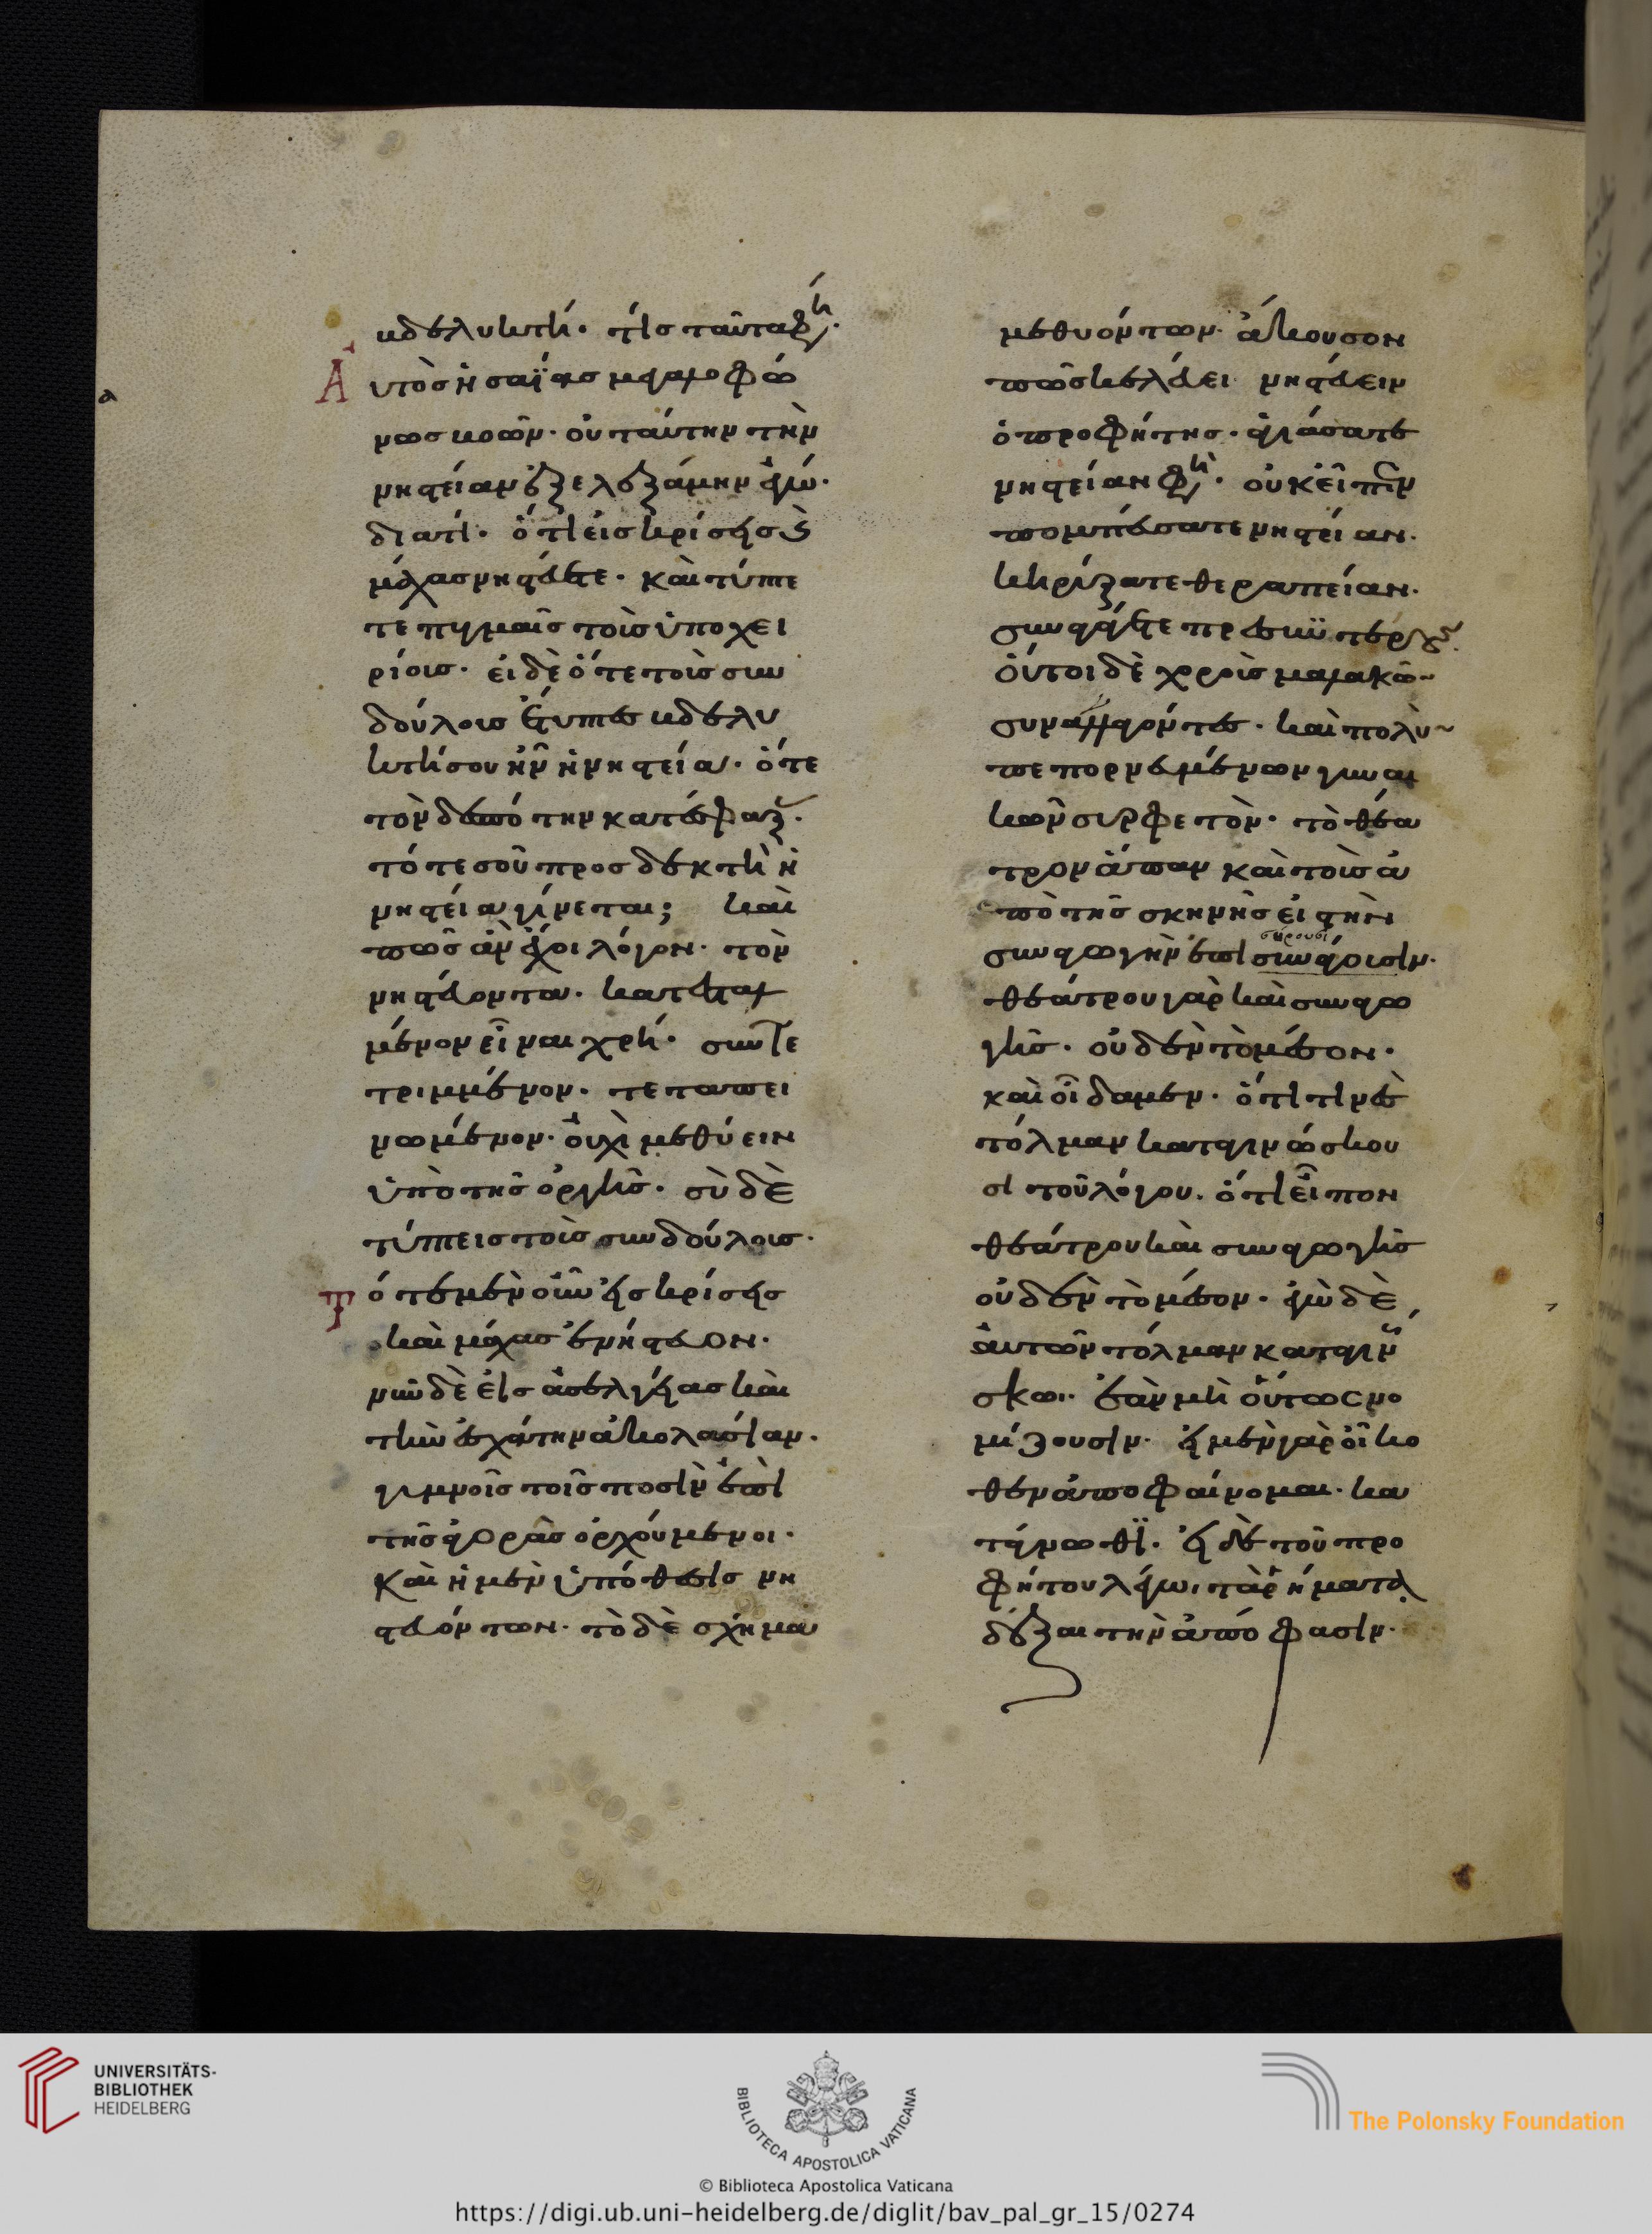 βδελυκτή· τίς ταῦτά φη·
Αὐτὸς ἡσαΐας μεγαλοφώ
νως βοῶν· οὐ ταύτην τὴν
νηστείαν ἐξελεξάμην ἐγώ·
διατί· ὅτι εἰς κρίσεις καὶ
μάχας νηστεύετε· καὶ τύπτε
τε πυγμαῖς τοὺς ὑποχει
ρίους· εἰ δὲ ὅτε τοὺς συν
δούλους ἔτυπτες βδελυ
κτή σου ἦν ἡ νηστεία· ὅτε
τὸν δεσπότην κατέσφαξας·
τότε σου προσδεκτὴ ἡ
νηστεία γίνεται; καὶ
πῶς ἂν ἔχοι λόγον· τὸν
νηστεύοντα· κατεσταλ
μένον εἶναι χρή· συντε
τριμμένον· τεταπει
νωμένον· οὐχὶ μεθύειν
ὑπὸ τῆς ὀργῆς· σὺ δὲ
τύπτεις τοὺς συνδούλους·
Τότε μὲν οὖν εἰς κρίσεις
καὶ μάχας ἐνήστευον·
νῦν δὲ εἰς ἀσελγείας καὶ
τὴν ἐσχάτην ἀκολασίαν·
γυμνοῖς τοῖς ποσὶν ἐπὶ
τῆς ἀγορᾶς ὀρχούμενοι·
καὶ ἡ μὲν ὑπόθεσις νη
στευόντων· τὸ δὲ σχῆμα
μεθυόντων· ἄκουσον
πῶς κελεύει νηστεύειν
ὁ προφήτης· ἁγιάσατε
νηστείαν φη· οὐκ εἶπεν
πομπεύσατε νηστείαν·
κηρύξατε θεραπείαν·
συναγάγετε πρεσβυτέρους·
οὗτοι δὲ χοροὺς μαλακῶν
συναγαγόντες· καὶ πολὺν
πεπορνευμένων γυναι
κῶν συρφετὸν· τὸ θέα
τρον ἅπαν καὶ τοὺς ἀ
πὸ τῆς σκηνῆς εἰς τὴν
σύρουσι
συναγωγὴν ἐπισυνάγουσιν·
θεάτρου γὰρ καὶ συναγω
γῆς· οὐδὲν τὸ μέσον·
καὶ οἶδα μὲν· ὅτι τινὲς
τόλμαν καταγινώσκου
σι τοῦ λόγου· ὅτι εἶπον
θεάτρου καὶ συναγωγῆς
οὐδὲν τὸ μέσον· ἐγὼ δὲ
αὐτῶν τόλμαν καταγινώ
σκω· ἐὰν μὴ οὕτως νο
μίζουσιν· εἰ μὲν γὰρ οἴκο
θεν ἀποφαίνομαι· κα
τάγνωθϊ· εἰ δὲ τοῦ προ
φήτου λέγωι τὰ ῥήματα
δέξαι τὴν ἀπόφασιν·
UNIVERSITÄTS-
BIBLIOTHEK
HEIDELBERG
BIBLIOTECA APOSTOLICA VATICANA
The Polonsky Foundation
© Biblioteca Apostolica Vaticana
https://digi.ub.uni-heidelberg.de/diglit/bav_pal_gr_15/0274